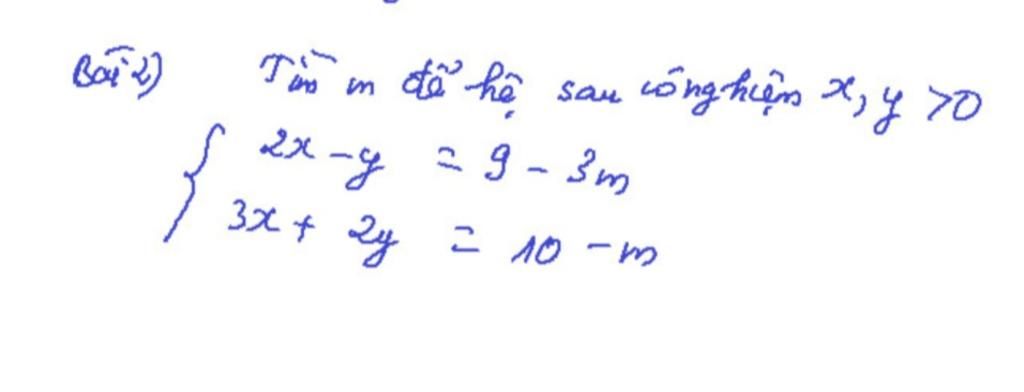 Bài 2) Tìm m để hệ sau có nghiệm x, y > 0
2x - y = 9 - 3m
3x + 2y = 10 - m